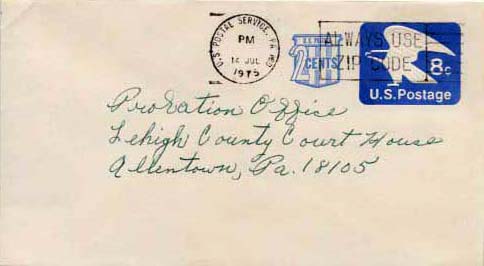 U.S. POSTAL SERVICE, PA
PM
14 JUL
1975
U.S. POSTAGE
2
CENTS
ALWAYS USE
ZIP CODE
8c
U.S. Postage
Probation Office
Lehigh County Court House
Allentown, Pa. 18105